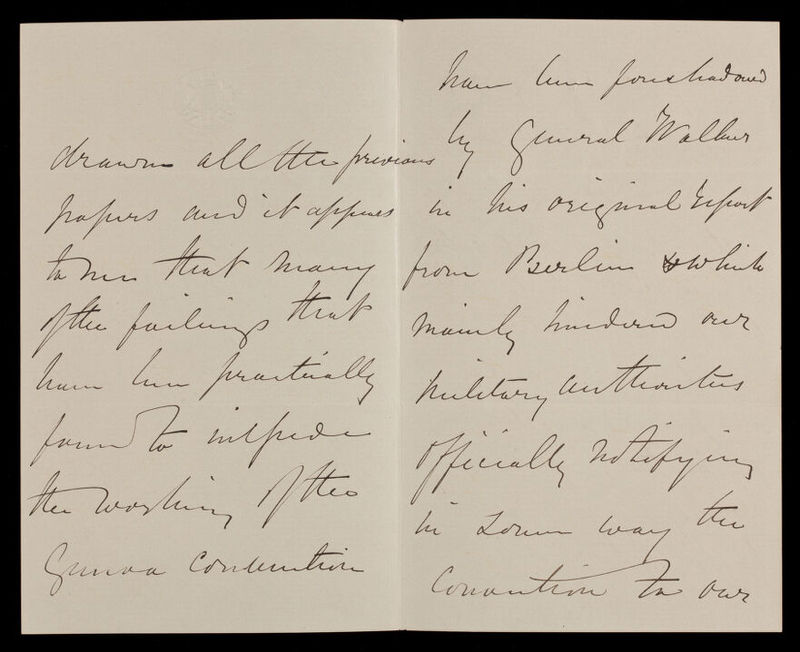 drawn all the previous
papers and it appears
to me that many
of the failings that
have been practically
found to impede
the working of the
Geneva Convention
have been foreshadowed
by General Walker
in his original report
from Berlin & which
mainly hindered our
military authorities
officially notifying
in some way the
Convention to our